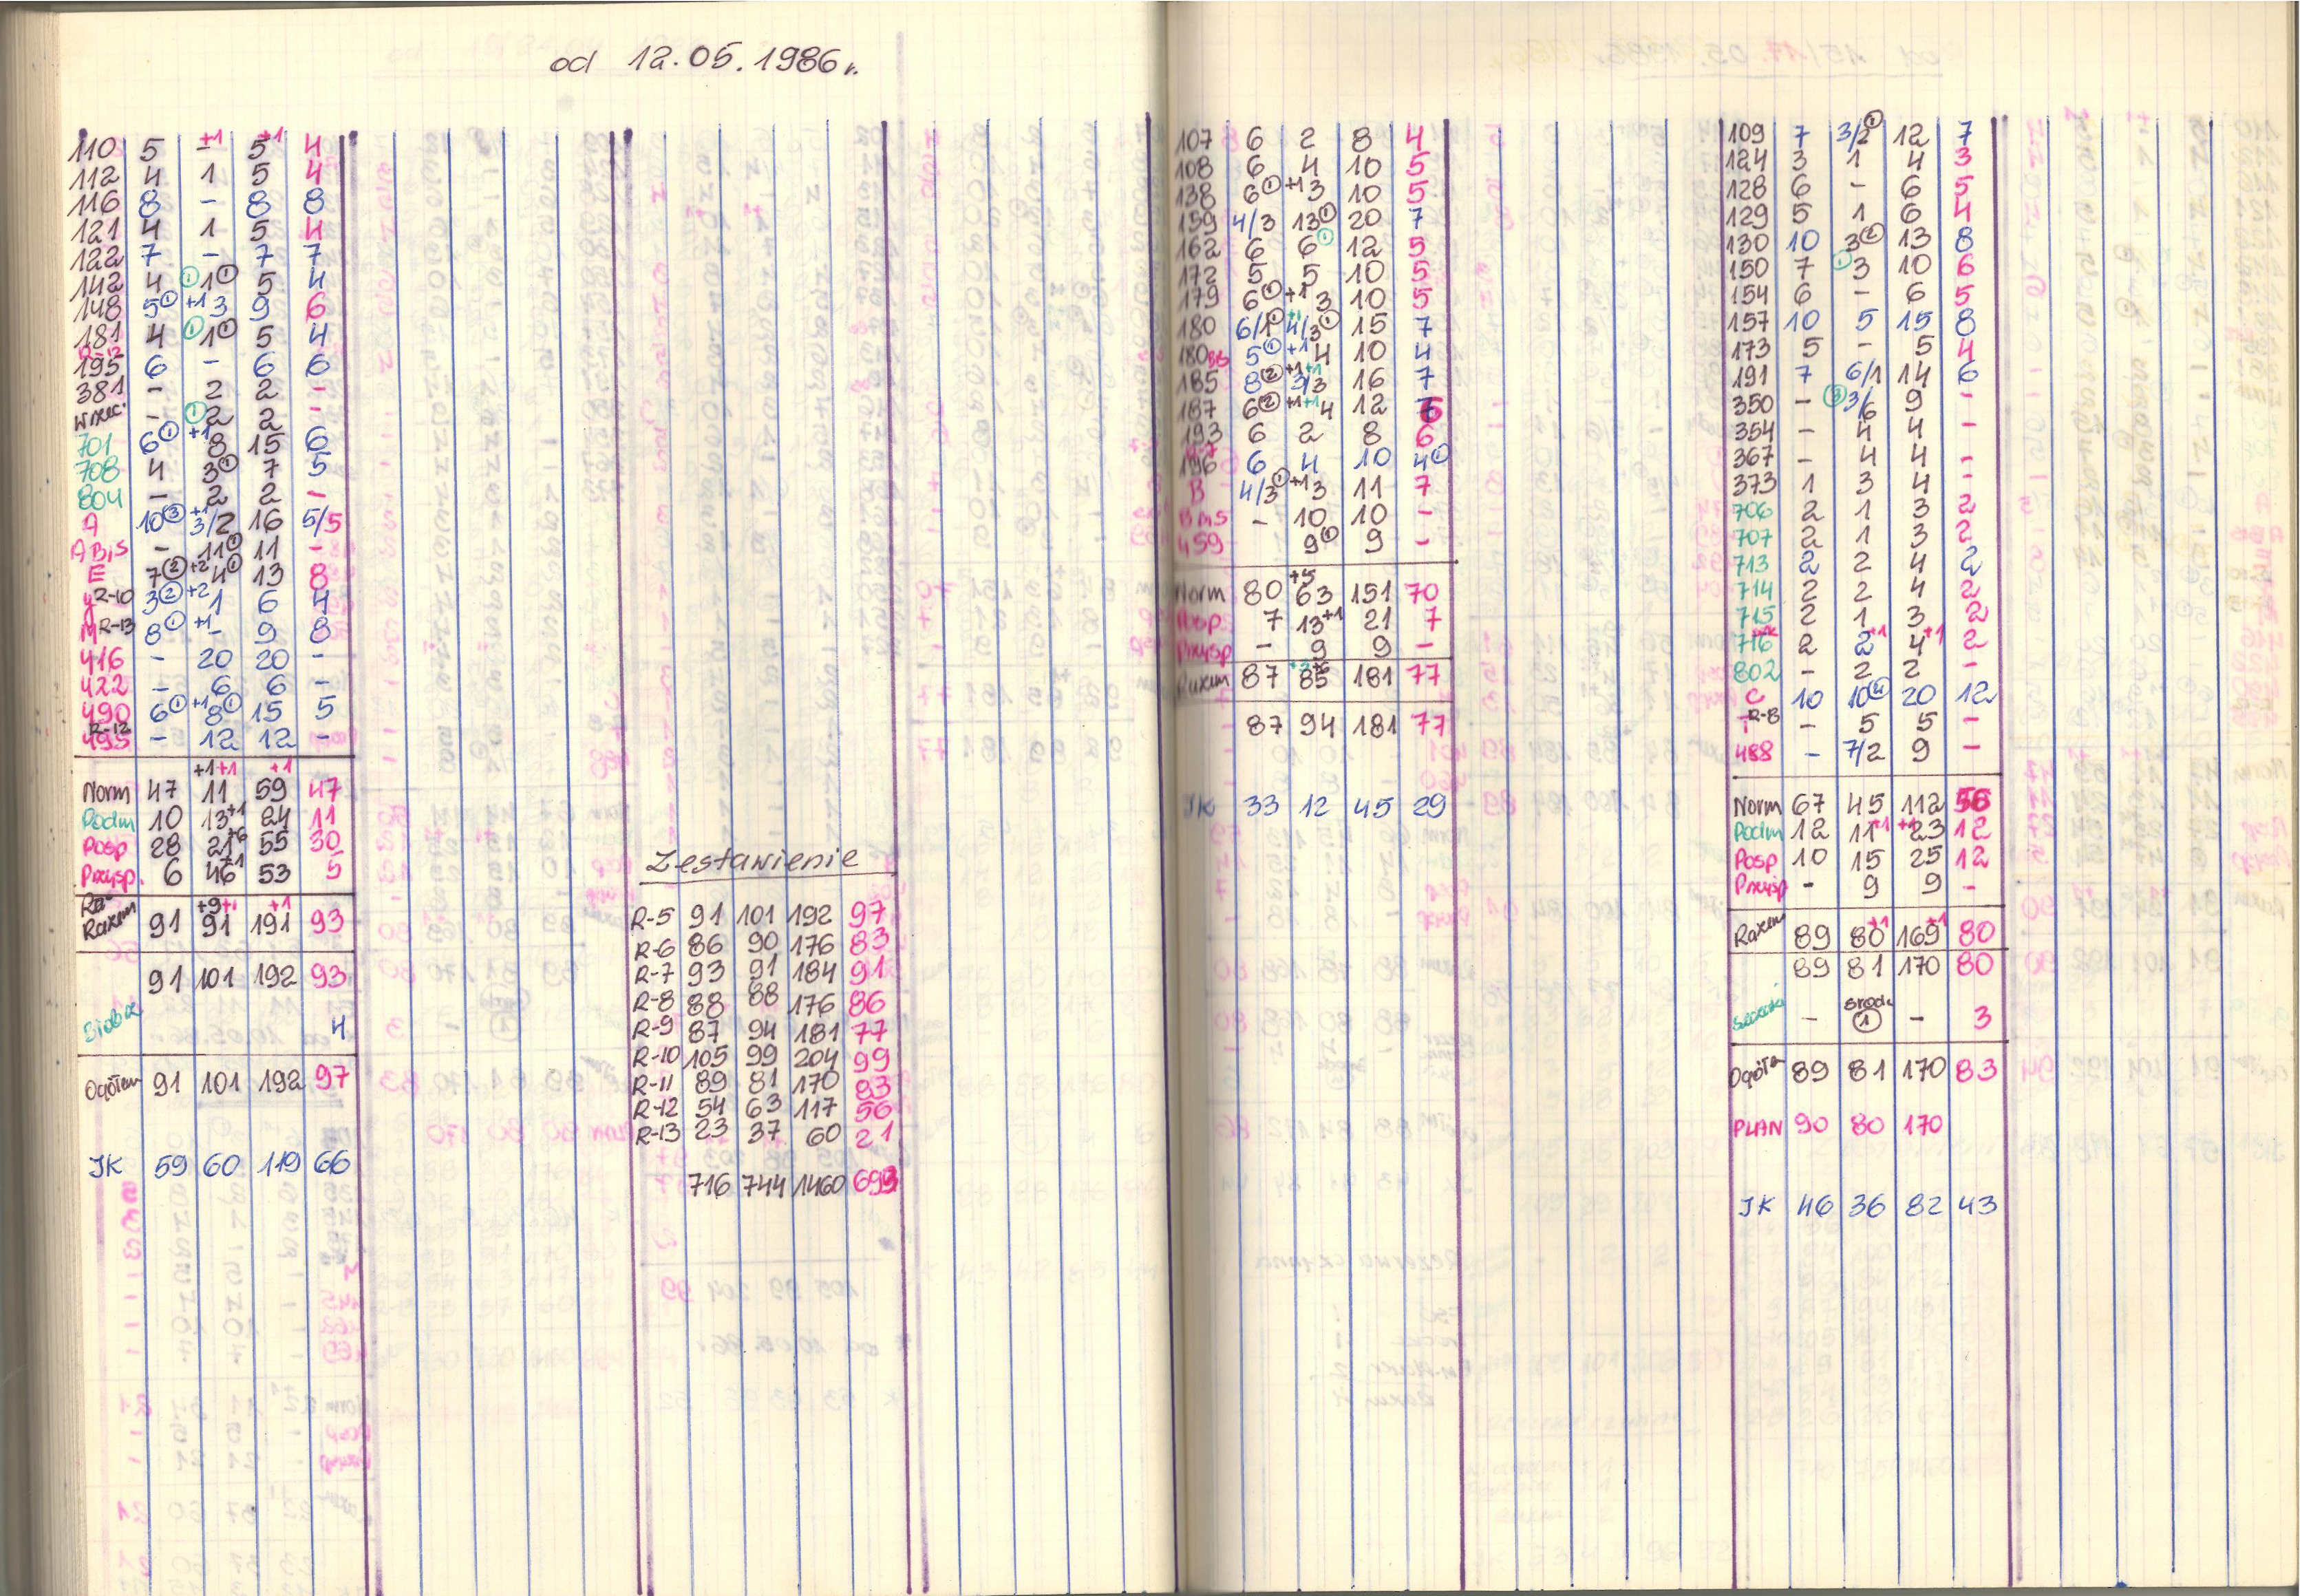 od 12.05.1986r.
110 5 - +1 5 +1 4
112 4 1 5 4
116 8 - 8 8
121 4 1 5 4
122 7 - 7 7
142 4 ① 1 ① 5 4
148 5 ① +1 3 9 6
181 4 ① 1 ① 5 4
195 6 - 6 6
381 - 2 2 -
- ① 2 2 -
701 6 ① +1 8 15 6
708 4 3 ① 7 5
804 - 2 2 -
A 10 ③ +1 3/2 16 5/5
A Bis - 11 ① 11 -
E 7 ② +2 4 ① 13 8
R-10 3 ② +2 1 6 4
M R-13 8 ① +1 - 9 8
416 - 20 20 -
422 - 6 6 -
490 6 ① +1 8 ① 15 5
R-12
495 - 12 12 -
+1 +1 +1
Norm 47 11 59 47
Podm 10 13 +1 24 11
Posp 28 21 +6 55 30
Przysp. 6 46 +1 53 5
+9 +1 +1
Razem 91 91 191 93
91 101 192 93
4
Ogółem 91 101 192 97
JK 59 60 119 66
Zestawienie
R-5 91 101 192 97
R-6 86 90 176 83
R-7 93 91 184 91
R-8 88 88 176 86
R-9 87 94 181 77
R-10 105 99 204 99
R-11 89 81 170 83
R-12 54 63 117 56
R-13 23 37 60 21
716 744 1460 693
107 6 2 8 4
108 6 4 10 5
138 6 ① +1 3 10 5
159 4/3 13 ① 20 7
162 6 6 ① 12 5
172 5 5 10 5
179 6 ① +1 3 10 5
180 6/1 ① +1 4/3 ① 15 7
180 Bis 5 ① +1 4 10 4
185 8 ② +1 +1 3/3 16 7
187 6 ② +1 +1 4 12 6
193 6 2 8 6
196 6 4 10 4 ①
B 4/3 ① +1 3 11 7
B Bis - 10 10 -
459 9 ① 9 -
Norm 80 +5 63 151 70
Posp 7 13 +1 21 7
Przysp - 9 9 -
Razem 87 85 181 77
87 94 181 77
JK 33 12 45 29
109 7 3/2 ① 12 7
124 3 1 4 3
128 6 - 6 5
129 5 1 6 4
130 10 3 ② 13 8
150 7 ① 3 10 6
154 6 - 6 5
157 10 5 15 8
173 5 - 5 4
191 7 6/1 14 6
350 - ③ 3/6 9 -
354 - 4 4 -
367 - 4 4 -
373 1 3 4 -
706 2 1 3 2
707 2 1 3 2
713 2 2 4 2
714 2 2 4 2
715 2 1 3 2
716 2 2 +1 4 +1 2
802 - 2 2 -
C 10 10 ④ 20 12
R-8 - 5 5 -
488 - 7/2 9 -
Norm 67 45 112 56
Podm 12 11 +1 +1 23 12
Posp 10 15 25 12
Przysp - 9 9 -
Razem 89 80 +1 169 +1 80
89 81 170 80
- ① - 3
Ogółem 89 81 170 83
PLAN 90 80 170
JK 46 36 82 43